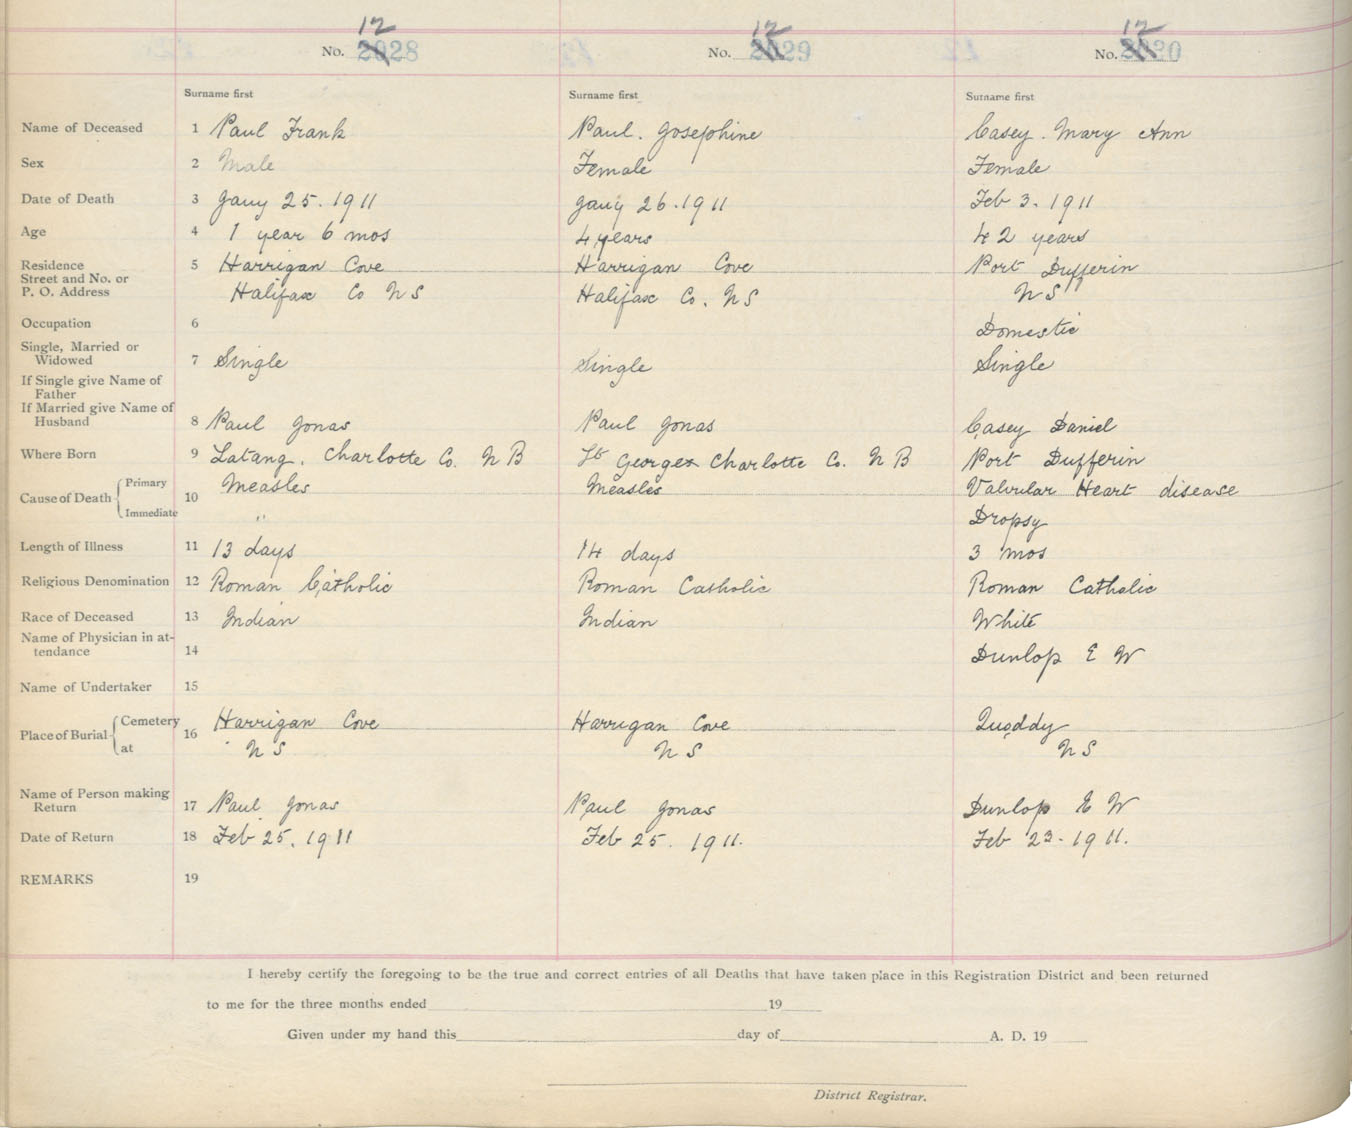 12 12 12
No. 2028 No. 2029 No. 2020
Surname first Surname first Surname first
Name of Deceased 1 Paul Frank Paul. Josephine Casey. Mary Ann
Sex 2 Male Female Female
Date of Death 3 Jany 25. 1911 Jany 26. 1911 Feb 3. 1911
Age 4 1 year 6 mos 4 years 42 years
Residence 5 Harrigan Cove Harrigan Cove Port Dufferin
Street and No. or
P. O. Address Halifax Co N S Halifax Co. N S N S
Occupation 6 Domestic
Single, Married or
Widowed 7 Single Single Single
If Single give Name of
Father
If Married give Name of
Husband 8 Paul Jonas Paul Jonas Casey Daniel
Where Born 9 Latang. Charlotte Co. N B St Georges Charlotte Co. N B Port Dufferin
Cause of Death Primary 10 Measles Measles Valvular Heart disease
Immediate " Dropsy
Length of Illness 11 13 days 14 days 3 mos
Religious Denomination 12 Roman Catholic Roman Catholic Roman Catholic
Race of Deceased 13 Indian Indian White
Name of Physician in at-
tendance 14 Dunlop E W
Name of Undertaker 15
Place of Burial Cemetery 16 Harrigan Cove Harrigan Cove Quoddy
at N S N S N S
Name of Person making
Return 17 Paul Jonas Paul Jonas Dunlop E W
Date of Return 18 Feb 25. 1911 Feb 25. 1911. Feb 23. 1911.
REMARKS 19
I hereby certify the foregoing to be the true and correct entries of all Deaths that have taken place in this Registration District and been returned
to me for the three months ended 19
Given under my hand this day of A. D. 19
District Registrar.